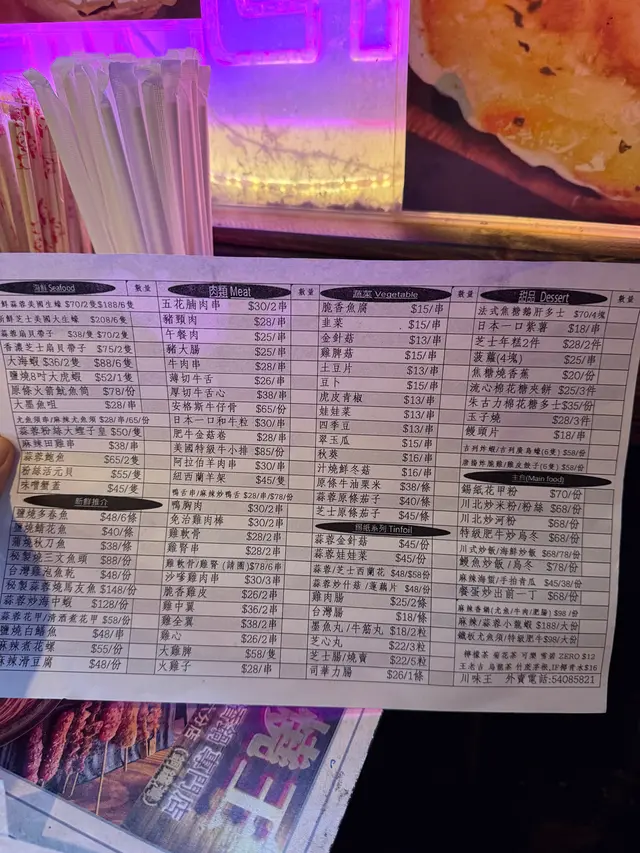 海鮮 Seafood 數量
鮮蒜蓉美國生蠔 $70/2隻$188/6隻
新鮮芝士美國大生蠔 $208/6隻
蒜蓉扇貝帶子 $38/隻 $70/2隻
香濃芝士扇貝帶子 $75/2隻
大海蝦 $36/2隻 $88/6隻
鹽燒8吋大虎蝦 $52/1隻
原條火箭魷魚筒 $78/份
大墨魚咀 $28/串
尤魚須串/麻辣尤魚須 $28/串/65/份
蒜蓉粉絲大蟶子皇 $50/隻
麻辣田雞串 $38/串
蒜蓉鮑魚 $65/2隻
粉絲活元貝 $55/隻
味噌蟹蓋 $45/隻
新鮮推介
鹽燒多春魚 $48/6條
鹽燒鯖花魚 $40/條
鹽燒秋刀魚 $38/條
秘製燒三文魚頭 $88/份
台灣雞泡魚乾 $48/份
秘製蒜蓉燒馬友魚 $148/份
蒜蓉炒海中蝦 $128/份
蒜蓉花甲/清酒煮花甲 $58/份
鹽燒白鱔魚 $48/串
麻辣煮花螺 $55/份
麻辣滑豆腐 $48/份
肉類 Meat 數量
五花腩肉串 $30/2串
豬頸肉 $28/串
午餐肉 $25/串
豬大腸 $25/串
牛肉串 $28/串
薄切牛舌 $26/串
厚切牛舌心 $38/串
安格斯牛仔骨 $65/份
日本一口和牛粒 $30/串
肥牛金菇卷 $28/串
美國特級牛小排 $85/份
阿拉伯羊肉串 $30/串
紐西蘭羊架 $45/隻
鴨舌串/麻辣炒鴨舌 $28/串/$78/份
鴨胸肉 $30/2串
免治雞肉棒 $30/2串
雞軟骨 $28/2串
雞腎串 $28/2串
雞軟骨/雞腎 (請圈)$78/6串
沙嗲雞肉串 $30/3串
脆香雞皮 $26/2串
雞中翼 $36/2串
雞全翼 $38/2串
雞心 $26/2串
大雞髀 $58/隻
火雞子 $28/串
蔬菜 Vegetable 數量
脆香魚腐 $15/串
韭菜 $15/串
金針菇 $13/串
雞脾菇 $15/串
土豆片 $13/串
豆卜 $15/串
虎皮青椒 $13/串
娃娃菜 $13/串
四季豆 $13/串
翠玉瓜 $15/串
秋葵 $16/串
汁燒鮮冬菇 $16/串
原條牛油粟米 $38/條
蒜蓉原條茄子 $40/條
芝士原條茄子 $45/條
錫紙系列 Tinfoil
蒜蓉金針菇 $45/份
蒜蓉娃娃菜 $45/份
蒜蓉/芝士西蘭花 $48/$58/份
蒜蓉炒什菇/蓮藕片 $48/份
雞肉腸 $25/2條
台灣腸 $18/條
墨魚丸/牛筋丸 $18/2粒
芝心丸 $22/3粒
芝士腸/燒賣 $22/5粒
司華力腸 $26/1條
甜品 Dessert 數量
法式焦糖鵝肝多士 $70/4塊
日本一口紫薯 $18/串
芝士年糕2件 $28/2件
菠蘿(4塊) $25/串
焦糖燒香蕉 $20/份
流心棉花糖夾餅 $25/3件
朱古力棉花糖多士$35/份
玉子燒 $28/3件
饅頭片 $18/串
吉列炸蝦/吉列廣島蠔(6隻) $58/份
唐揚炸脆雞/雞皮餃子(6隻) $58/份
主食(Main food)
錫紙花甲粉 $70/份
川北炒米粉/粉絲 $68/份
川北炒河粉 $68/份
特級肥牛炒烏冬 $68/份
川式炒飯/海鮮炒飯 $68/78/份
鰻魚炒飯/烏冬 $78/份
麻辣海蜇/手拍青瓜 $45/38/份
餐蛋炒出前一丁 $68/份
麻辣香鍋(尤魚/牛肉/肥腸) $98/份
麻辣/蒜蓉小龍蝦 $188/大份
鐵板尤魚須/特級肥牛$98/大份
檸檬茶 菊花茶 可樂 雪碧 ZERO $12
王老吉 烏龍茶 竹蔗茅根,IF椰青水$16
川味王 外賣電話:54085821
燒王